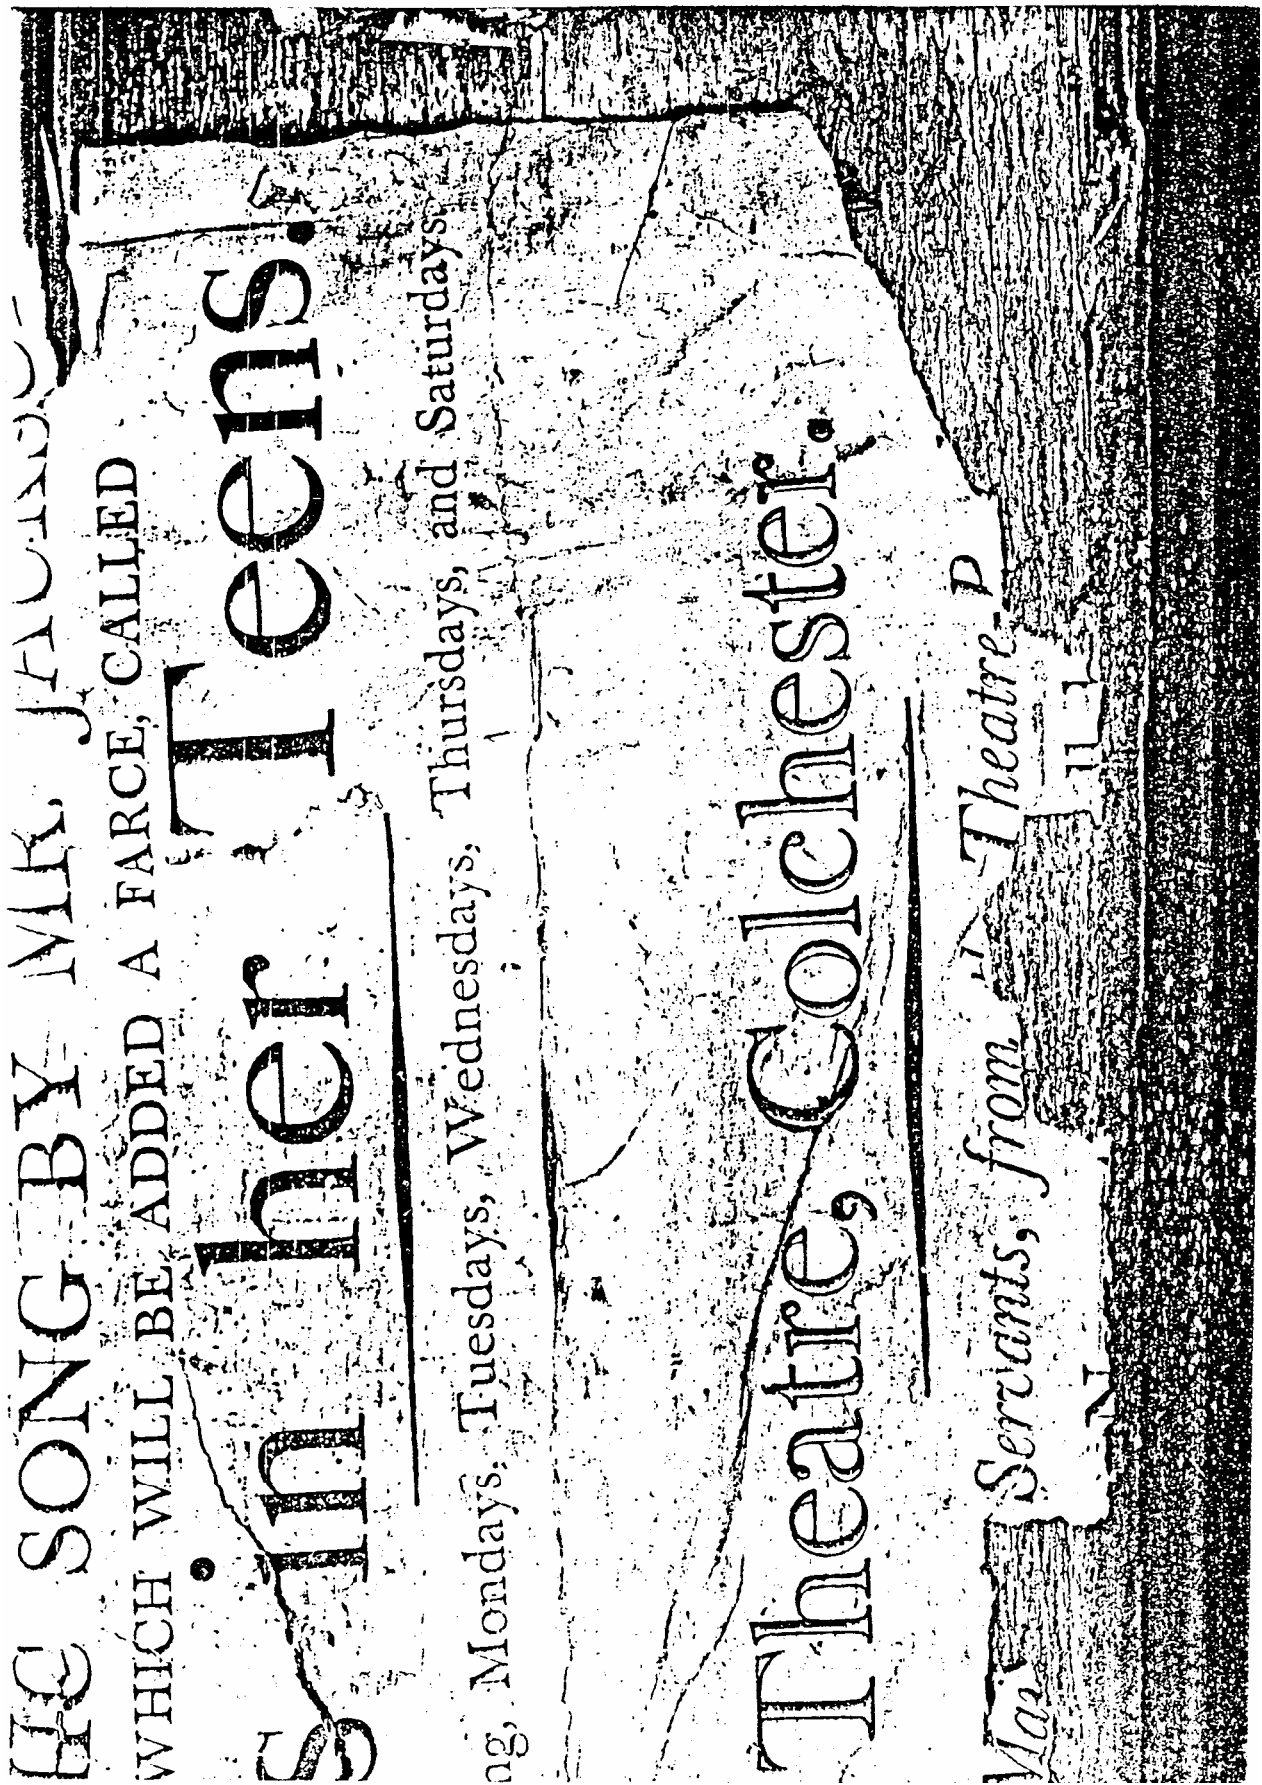 IC SONG BY MR. JACKSO
WHICH WILL BE ADDED A FARCE, CALLED
s in her Teens.
ng, Mondays, Tuesdays, Wednesdays, Thursdays, and Saturdays.
Theatre, Colchester.
Servants, from Theatre